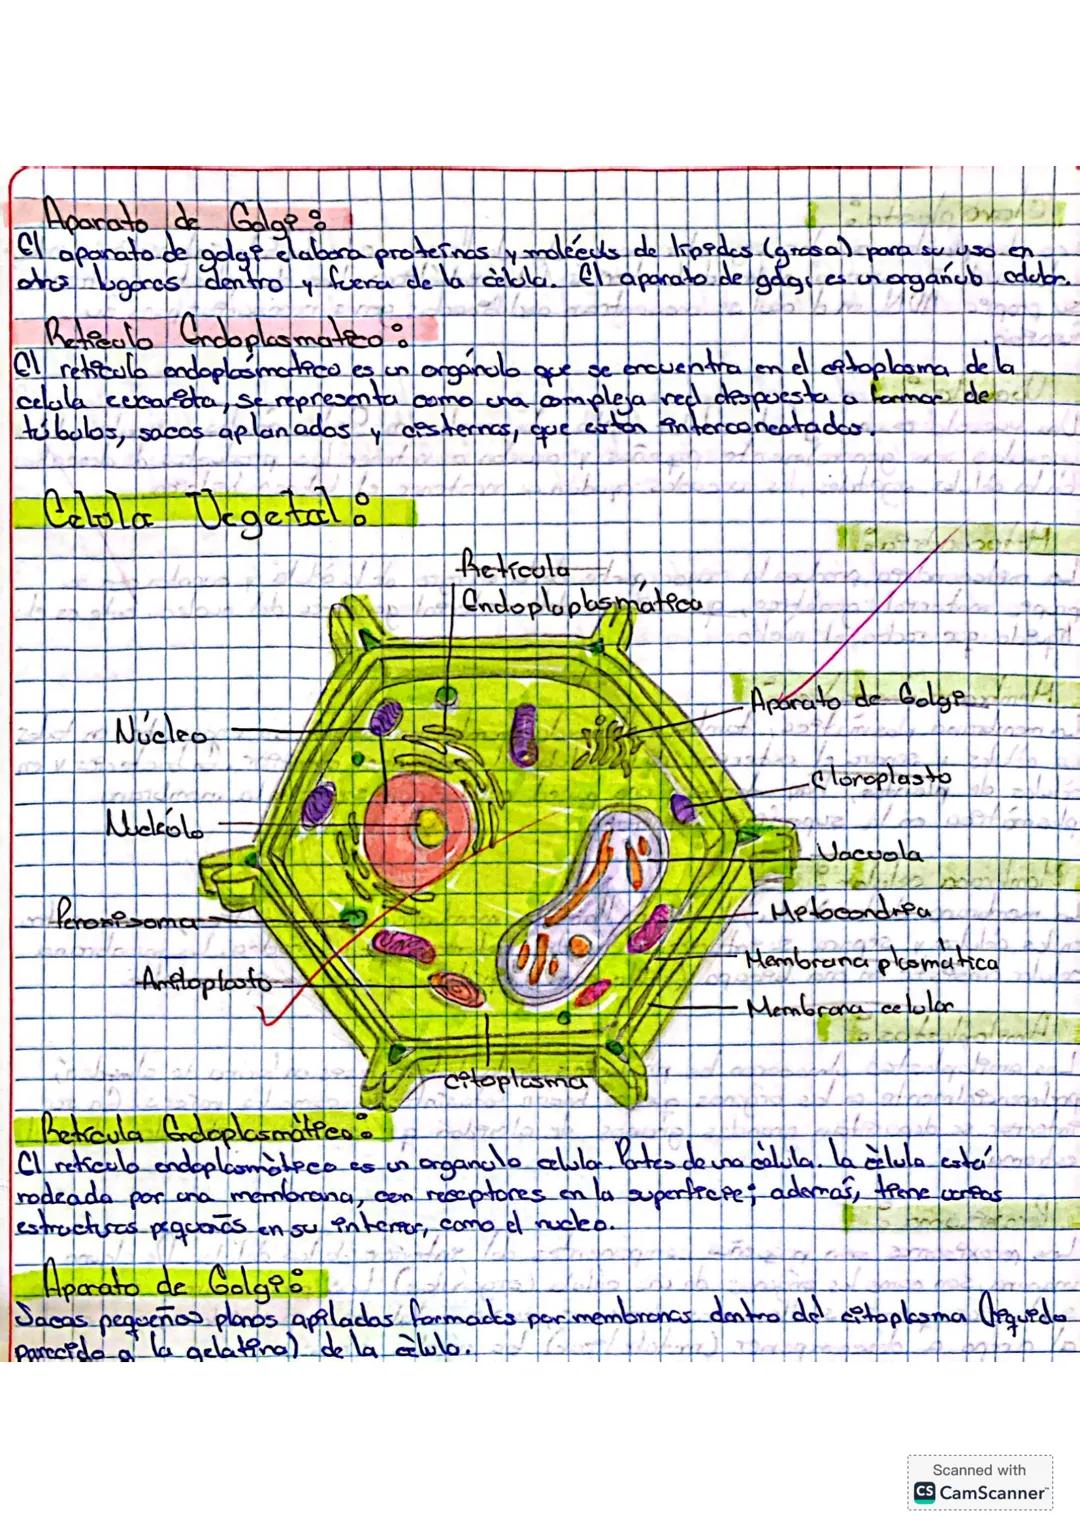 Aparato de Golgi:
El aparato de golgi elabora proteínas y moléculs de lípides (grasa) para su uso en
otros lugares dentro y fuera de la célula. El aparato de golgi es un orgánulo celular.
Reticulo Endoplasmatico:
El reticulo endoplásmatico es un orgánulo que se encuentra en el citoplasma de la
celula eucariota, se representa como una compleja red dispuesta a formar de
túbulos, sacos aplanados y cisternas, que estan interconectados.
Celula Vegetal:
Retícula
Endoplaplasmática
Núcleo
Aparato de Golgi
Cloroplasto
Nucleólo
Vacuola
Peroxisoma
Mitocondria
Membrana plasmática
Amiloplasto
Membrana celular
citoplasma
Retícula Endoplasmático:
El reticulo endoplasmàtico es un organulo celular. Partes de una célula. la célula está
rodeada por una membrana, con receptores en la superficie; además, tiene varias
estructuras pequeñas en su interior, como el nucleo.
Aparato de Golgi:
Sacas pequeños planos apiladas formados por membranas dentro del citoplasma (liquido
parecido a la gelatina) de la célula.
Scanned with
CS CamScanner